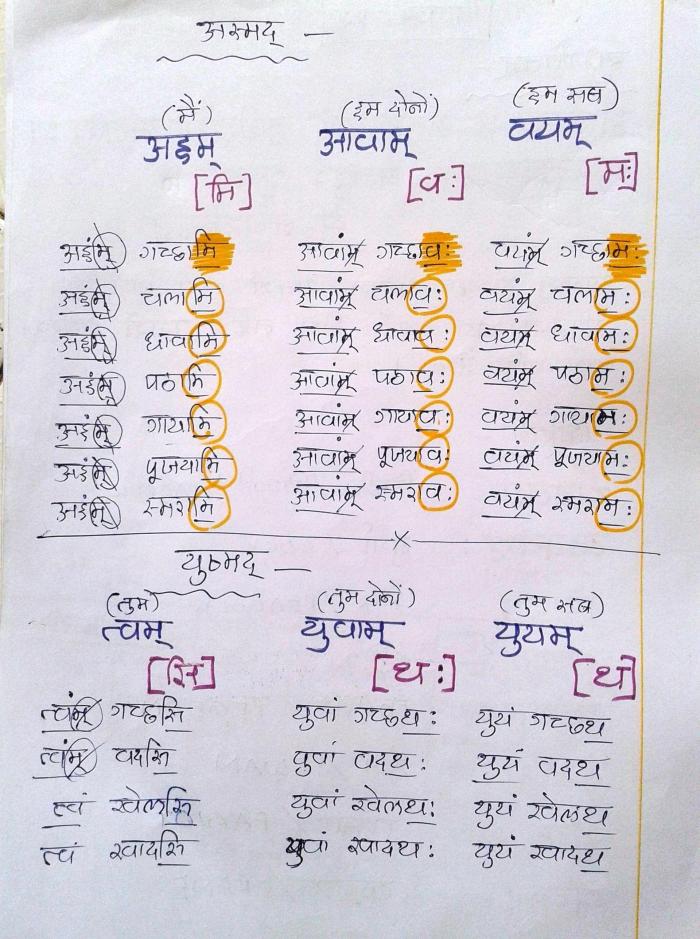 अस्मद् —
(मैं) (हम दोनों) (हम सब)
अहम् आवाम् वयम्
[मि] [वः] [मः]
अहंम् गच्छामि आवांम् गच्छावः वयंम् गच्छामः
अहंम् चलामि आवांम् चलावः वयंम् चलामः
अहंम् धावामि आवांम् धावावः वयंम् धावामः
अहंम् पठामि आवांम् पठावः वयंम् पठामः
अहंम् गायामि आवांम् गायावः वयंम् गायामः
अहंम् पूजयामि आवांम् पूजयावः वयंम् पूजयामः
अहंम् स्मरामि आवांम् स्मरावः वयंम् स्मरामः
युष्मद् —
(तुम) (तुम दोनों) (तुम सब)
त्वम् युवाम् युयम्
[सि] [थः] [थ]
त्वंम् गच्छसि युवां गच्छथः युयं गच्छथ
त्वंम् वदसि युवां वदथः युयं वदथ
त्वं खेलसि युवां खेलथः युयं खेलथ
त्वं खादसि युवां खादथः युयं खादथ